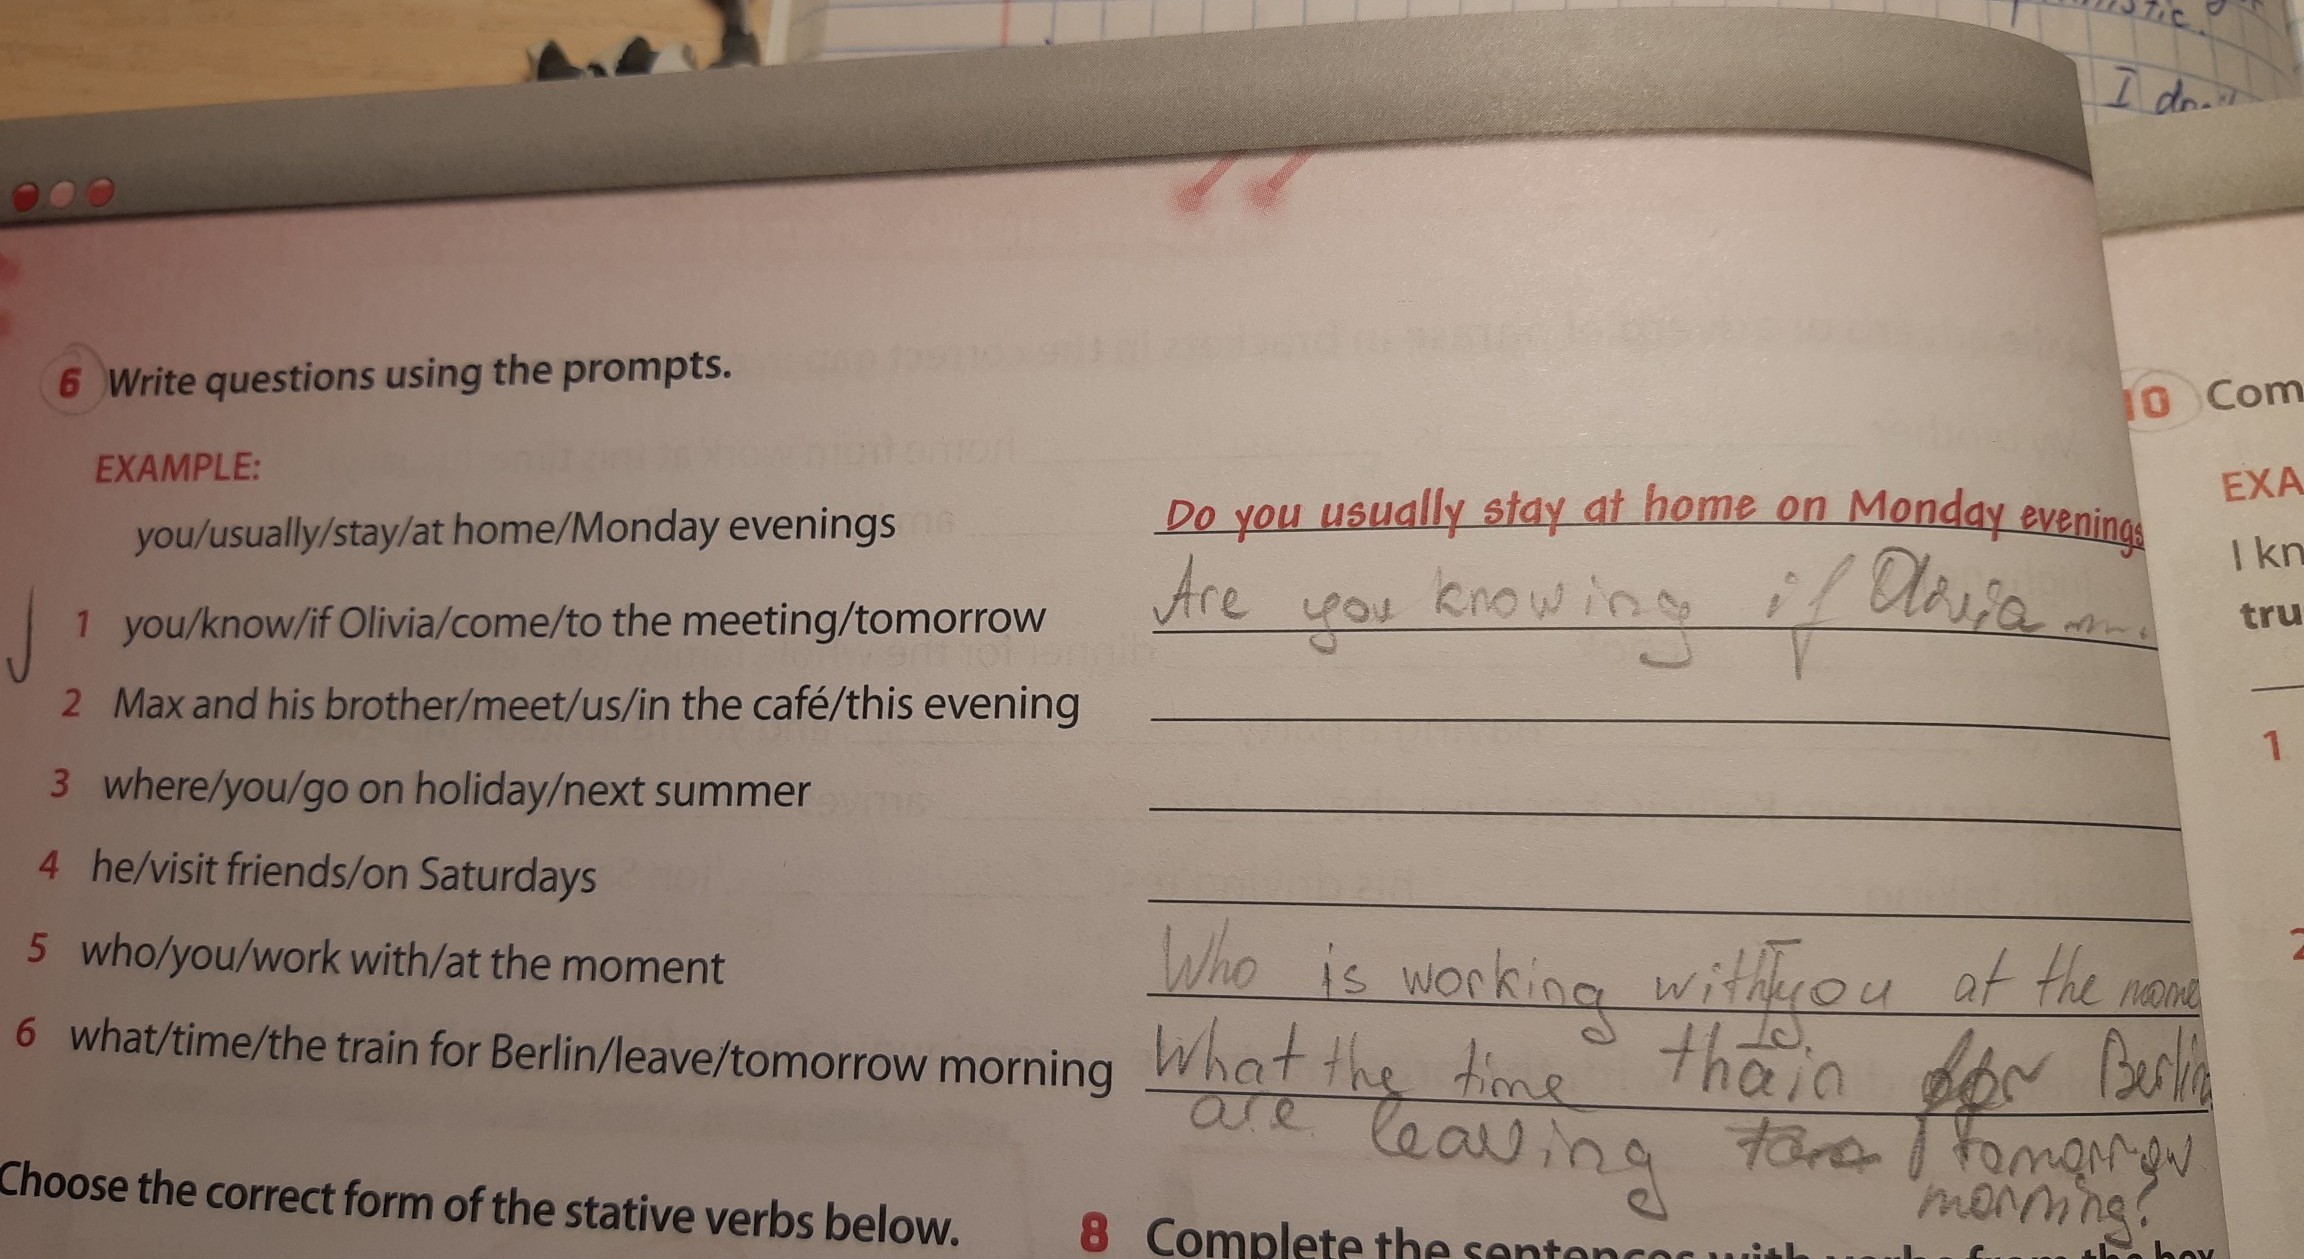 I don't
6 Write questions using the prompts.
EXAMPLE:
you/usually/stay/at home/Monday evenings
Do you usually stay at home on Monday evenings
1 you/know/if Olivia/come/to the meeting/tomorrow
Are you knowing if Olivia
2 Max and his brother/meet/us/in the café/this evening
3 where/you/go on holiday/next summer
4 he/visit friends/on Saturdays
5 who/you/work with/at the moment
Who is working with you at the mome
6 what/time/the train for Berlin/leave/tomorrow morning
What the time thain for Berlin
are leaving tomorrow
morning?
Choose the correct form of the stative verbs below.
8 Complete the sentences with verbs from the box
10 Com
EXA
I kn
tru
1
2